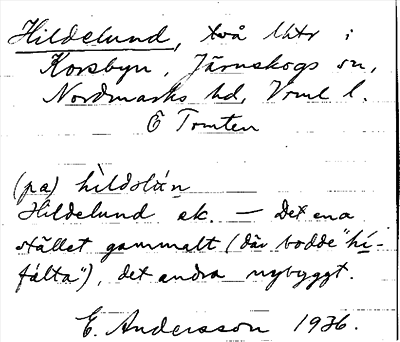 Hildelund, två lhtr i
Korsbyn, Järnskogs sn,
Nordmarks hd, Vrml l.
E Tomten
(pa) hìldəlún
Hildelund ek. – Det ena
stället gammalt (där bodde "hí-
fálta"), det andra nybyggt.
E. Andersson 1936.